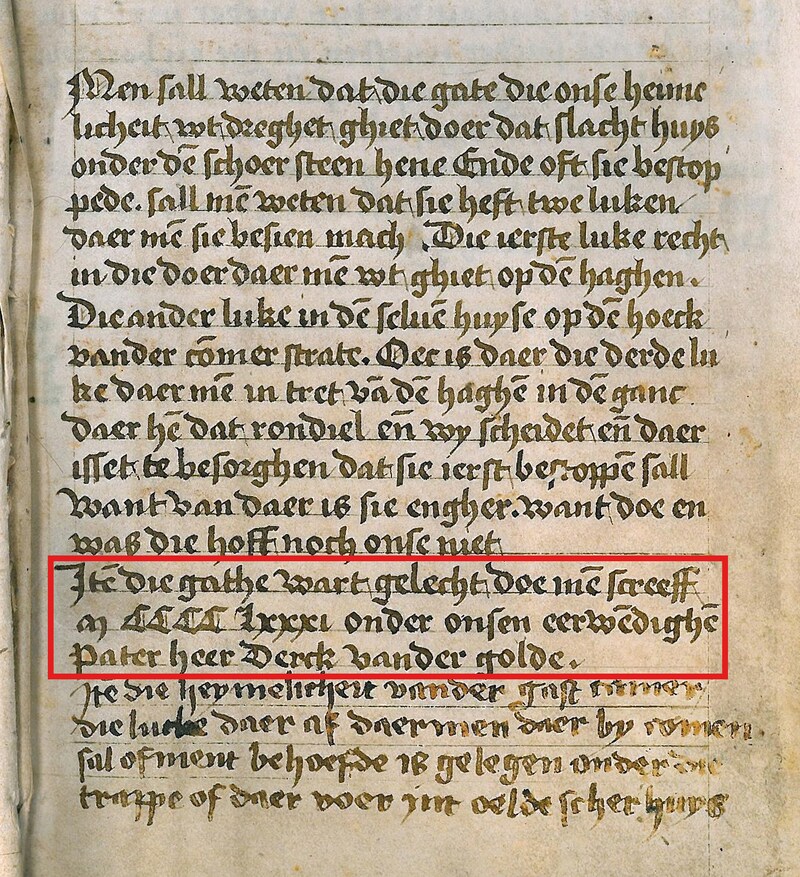 Men sall weten dat die gate die onse heime
licheit wtdreghet ghiet doer dat slacht huys
onder dē schoer steen hene Ende oft sie bestop
pede. sall mē weten dat sie heft twe luken
daer mē sie besien mach . Die ierste luke recht
in die doer daer mē wt ghiet op dē haghen.
Die ander luke in dē seluē huyse op dē hoeck
vander cōmer strate. Oec is daer die derde lu
ke daer mē in tret vā dē haghē in dē ganc
daer hē dat rondiel eñ wy scheidet eñ daer
isset te besorghen dat sie ierst bestoppē sall
want van daer is sie engher. want doe en
was die hoff noch onse niet
Itē die gathe wart gelecht doe mē screeff
m CCCC lxxxi onder onsen eerwēdighē
Pater heer Derck vander golde.
Itē die heymelicheit vander gast camer
die lucke daer af daermen daer by comen
sal of ment behoefde is gelegen onder die
trappe of daer voer int oelde scher huys